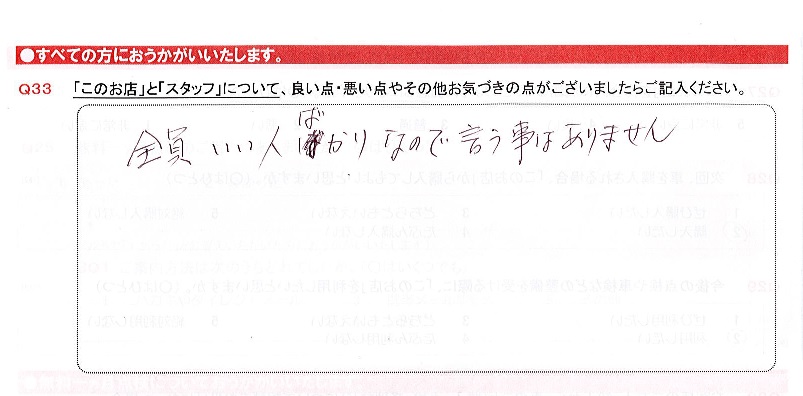 ●すべての方におうかがいいたします。
Q33 「このお店」と「スタッフ」について、良い点・悪い点やその他お気づきの点がございましたらご記入ください。
全員いい人ばかりなので言う事はありません